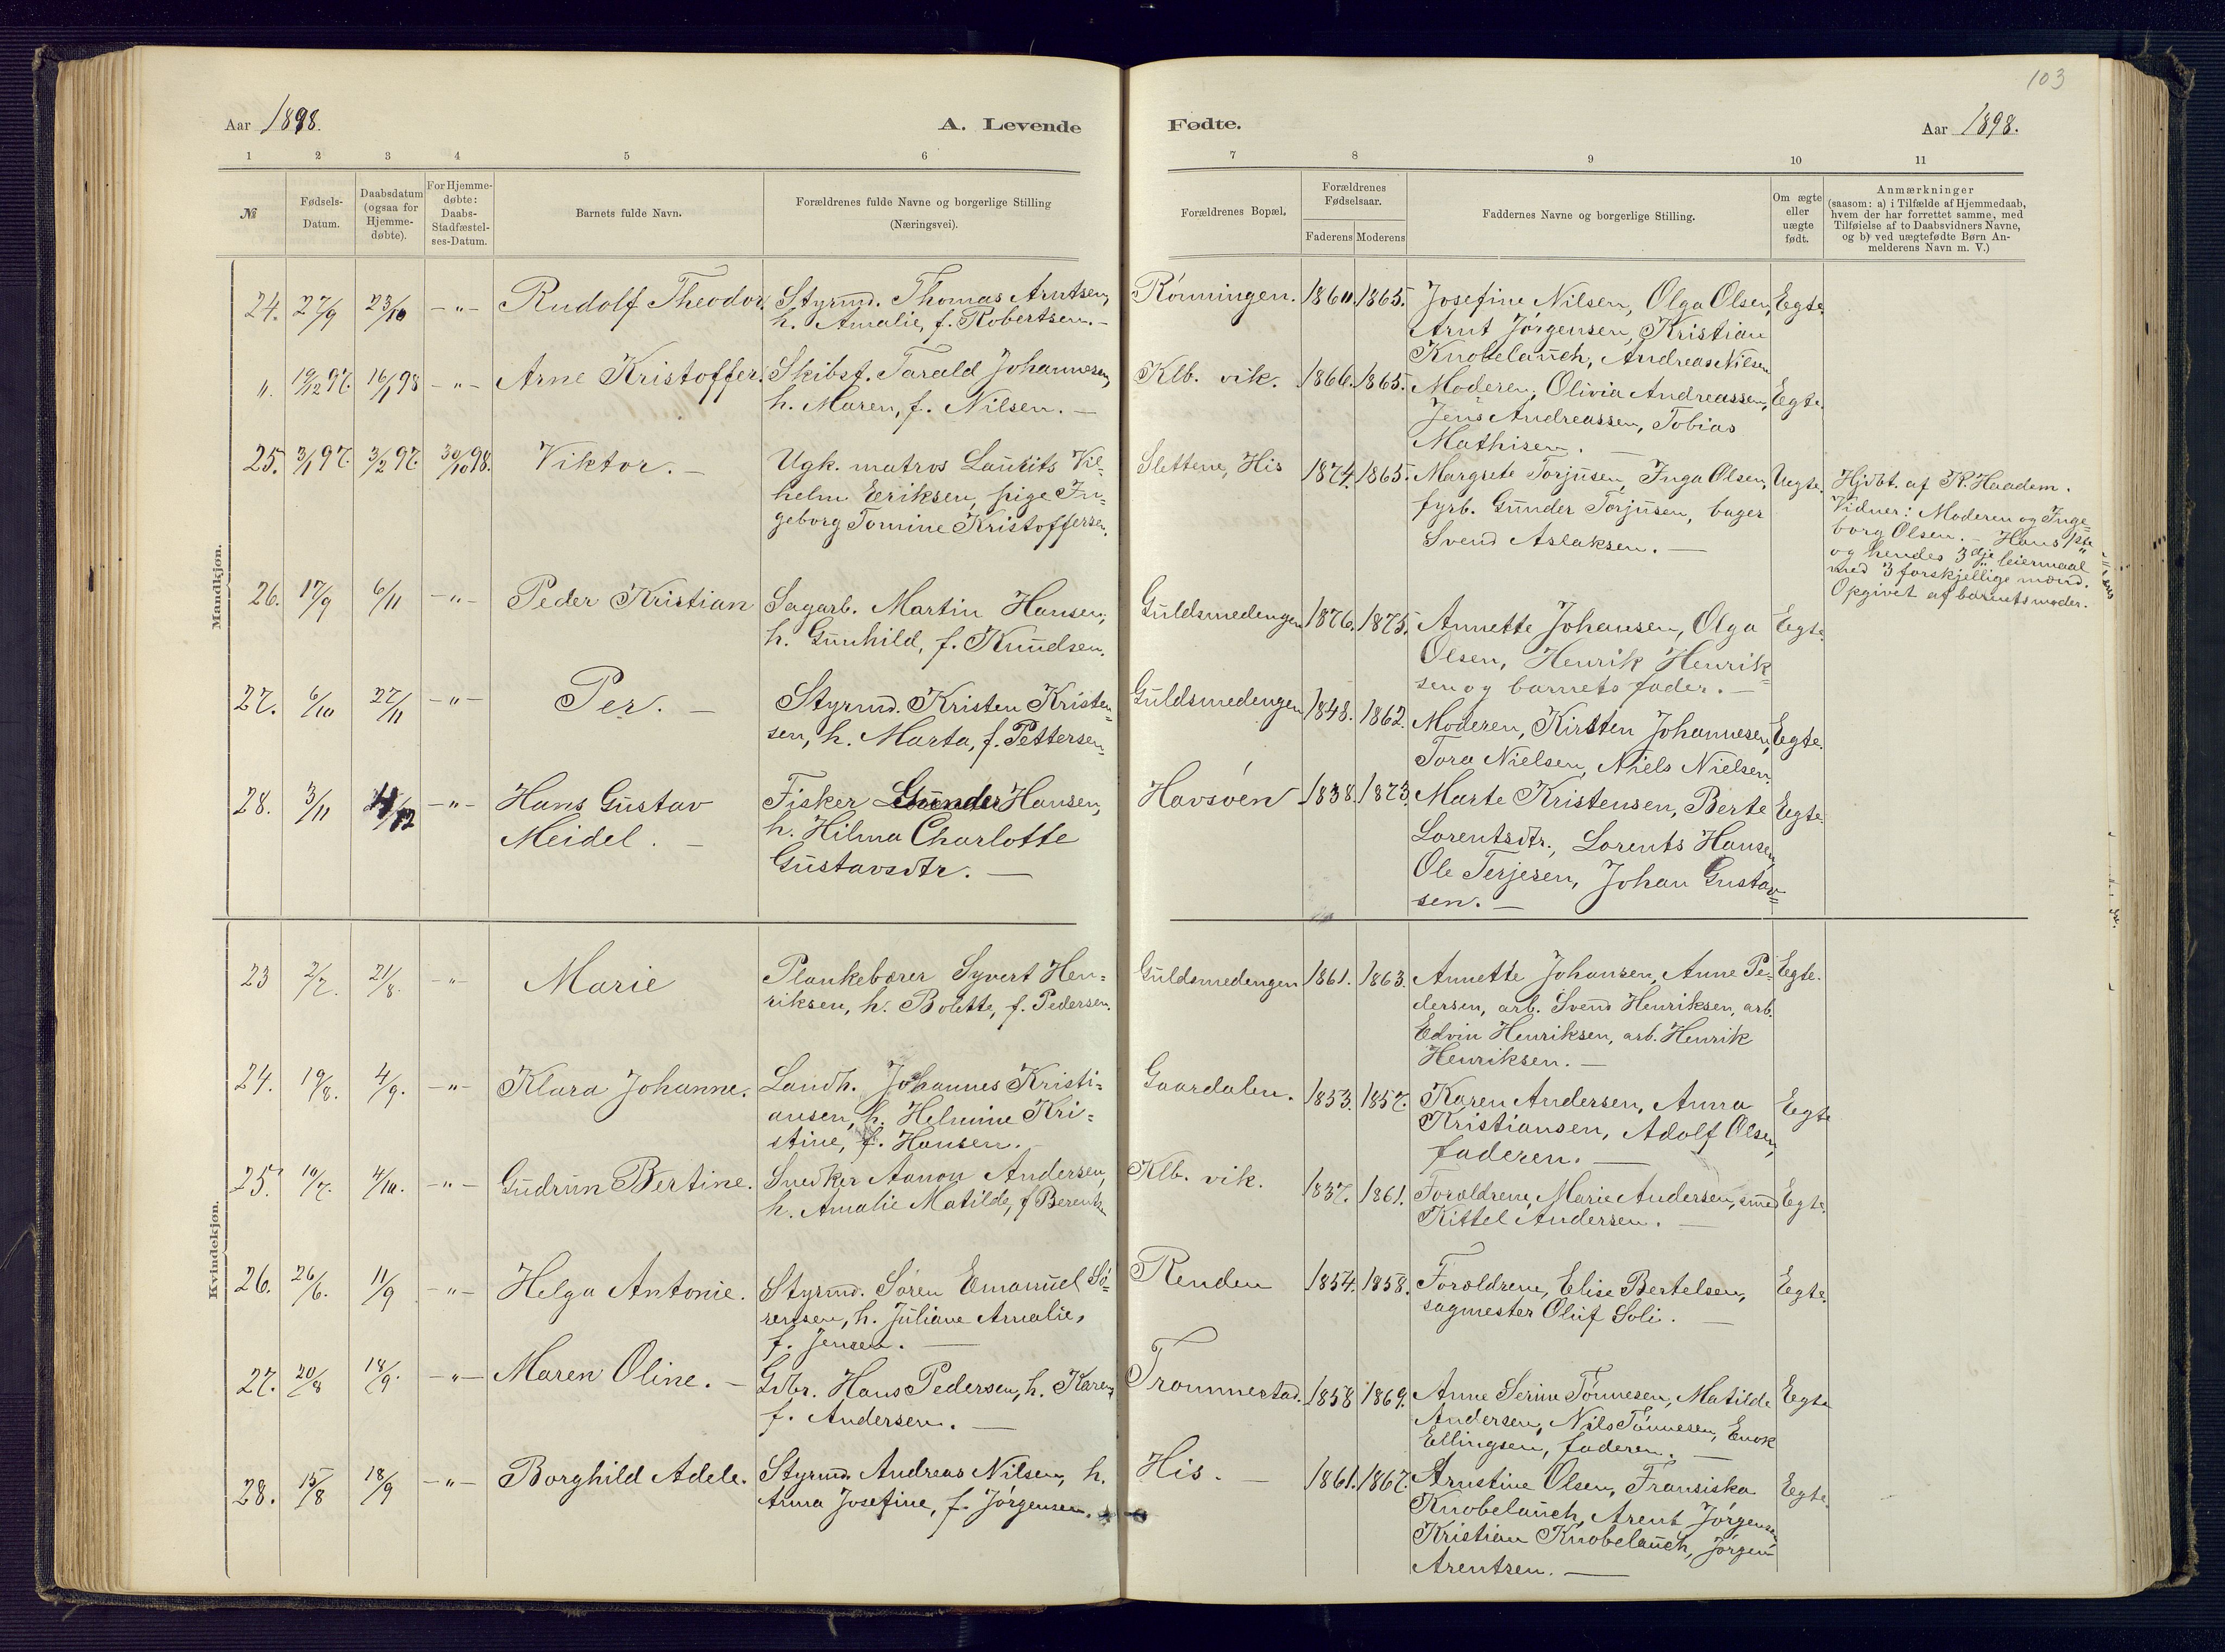 103
Aar 1898.
A. Levende
Fødte.
Aar 1898.
1 2 3 4 5 6 7 8 9 10 11
№
Fødsels-
Datum.
Daabsdatum
(ogsaa for
Hjemme-
døbte).
For Hjemme-
døbte:
Daabs-
Stadfæstel-
ses-Datum.
Barnets fulde Navn.
Forældrenes fulde Navne og borgerlige Stilling
(Næringsvei).
Forældrenes Bopæl.
Forældrenes
Fødselsaar.
Faderens Moderens
Faddernes Navne og borgerlige Stilling.
Om ægte
eller
uægte
født.
Anmærkninger
(saasom: a) i Tilfælde af Hjemmedaab,
hvem der har forrettet samme, med
Tilføielse af to Daabsvidners Navne,
og b) ved uægtefødte Børn An-
melderens Navn m. V.)
Mandkjøn.
24. 27/9 23/10 -„- Rudolf Theodor. Styrmd. Thomas Arntsen, Rönningen. 1860. 1865. Josefine Nilsen, Olga Olsen, Egte.
h. Amalie, f. Robertsen. - Arnt Jörgensen, Kristian
Knobelauch, Andreas Nilsen
„. 19/12 97. 16/1 98 -„- Arne Kristoffer. Skibsf. Tarald Johannesen, Klb. vik. 1866. 1865. Moderen, Olivia Andreassen, Egte.
h. Maren, f. Nilsen. - Jens Andreassen, Tobias
Mathisen. -
25. 3/1 97. 3/2 97. 30/10 98. Viktor. - Ugk. matros Laurits Vil- Slettene, His 1874. 1865. Margrete Torjusen, Inga Olsen, Uegte. Hjdbt. af K. Haadem.
helm Eriksen, pige In- fyrb. Gunder Torjusen, bager Vidner: Moderen og Inge-
geborg Tomine Kristoffersen. Svend Aslaksen. - borg Olsen. - Hans 1ste
og hendes 3dje leiermaal
med 3 forskjellige mænd.
Opgivet af barnets moder.
26. 17/9 6/11 -„- Peder Kristian Sagarb. Martin Hansen, Guldsmedengen 1876. 1875. Annette Johansen, Olga Egte.
h. Gunhild, f. Knudsen. Olsen, Henrik Henrik-
sen og barnets fader. -
27. 6/10 27/11 -„- Per. - Styrmd. Kristen Kristen- Guldsmedengen 1848. 1862. Moderen, Kirsten Johannesen, Egte.
sen, h. Marta, f. Pettersen. Tora Nielsen, Niels Nielsen.
28. 3/11 -„- Hans Gustav Fisker Gunder Hansen, Havsöen 1838. 1873. Marte Kristensen, Berte Egte.
Meidel. - h. Hilma Charlotte Lorentsdtr., Lorents Hansen,
Gustavsdtr. - Ole Terjesen, Johan Gustav-
sen. -
Kvindekjøn.
23 2/7. 21/8. -„- Marie Plankebærer Syvert Hen- Guldsmedengen 1861. 1863. Annette Johansen, Anne Pe- Egte.
riksen, h. Bolette, f. Pedersen. dersen, arb. Svend Henriksen, arb.
Edvin Henriksen, arb. Henrik
Henriksen. -
24. 19/8. 4/9. -„- Klara Johanne. Landh. Johannes Kristi- Gaardalen. 1853. 1857. Karen Andersen, Anna Egte
ansen, h. Helmine Kri- Kristiansen, Adolf Olsen,
stine, f. Hansen. - faderen. -
25. 19/7. 4/10. -„- Gudrun Bertine. Snedker Aanon Andersen, Klb. vik. 1837. 1861. Forældrene, Marie Andersen, smed Egte.
h. Amalie Matilde, f Berentsen Kittel Andersen. -
26. 26/6. 11/9 -„- Helga Antonie. Styrmd. Sören Emanuel Sö- Renden 1854. 1858. Forældrene, Elise Bertelsen, Egte.
rensen, h. Juliane Amalie, sagmester Oluf Soli. -
f. Jensen. -
27. 20/8 18/9. -„- Maren Oline. - Gdbr. Hans Pedersen, h. Karen, Trommestad. 1858 1869. Anne Serine Tönnesen, Matilde Egte
f. Andersen. - Andersen, Nils Tönnesen, Enok
Ellingsen, faderen. -
28. 15/8 18/9 -„- Borghild Adele. Styrmd. Andreas Nilsen, h. His. - 1861. 1867. Arnstine Olsen, Fransiska Egte.
Anna Josefine, f. Jörgensen. Knobelauch, Arent Jörgensen
Kristian Knobelauch, Jörgen
Arentsen. -